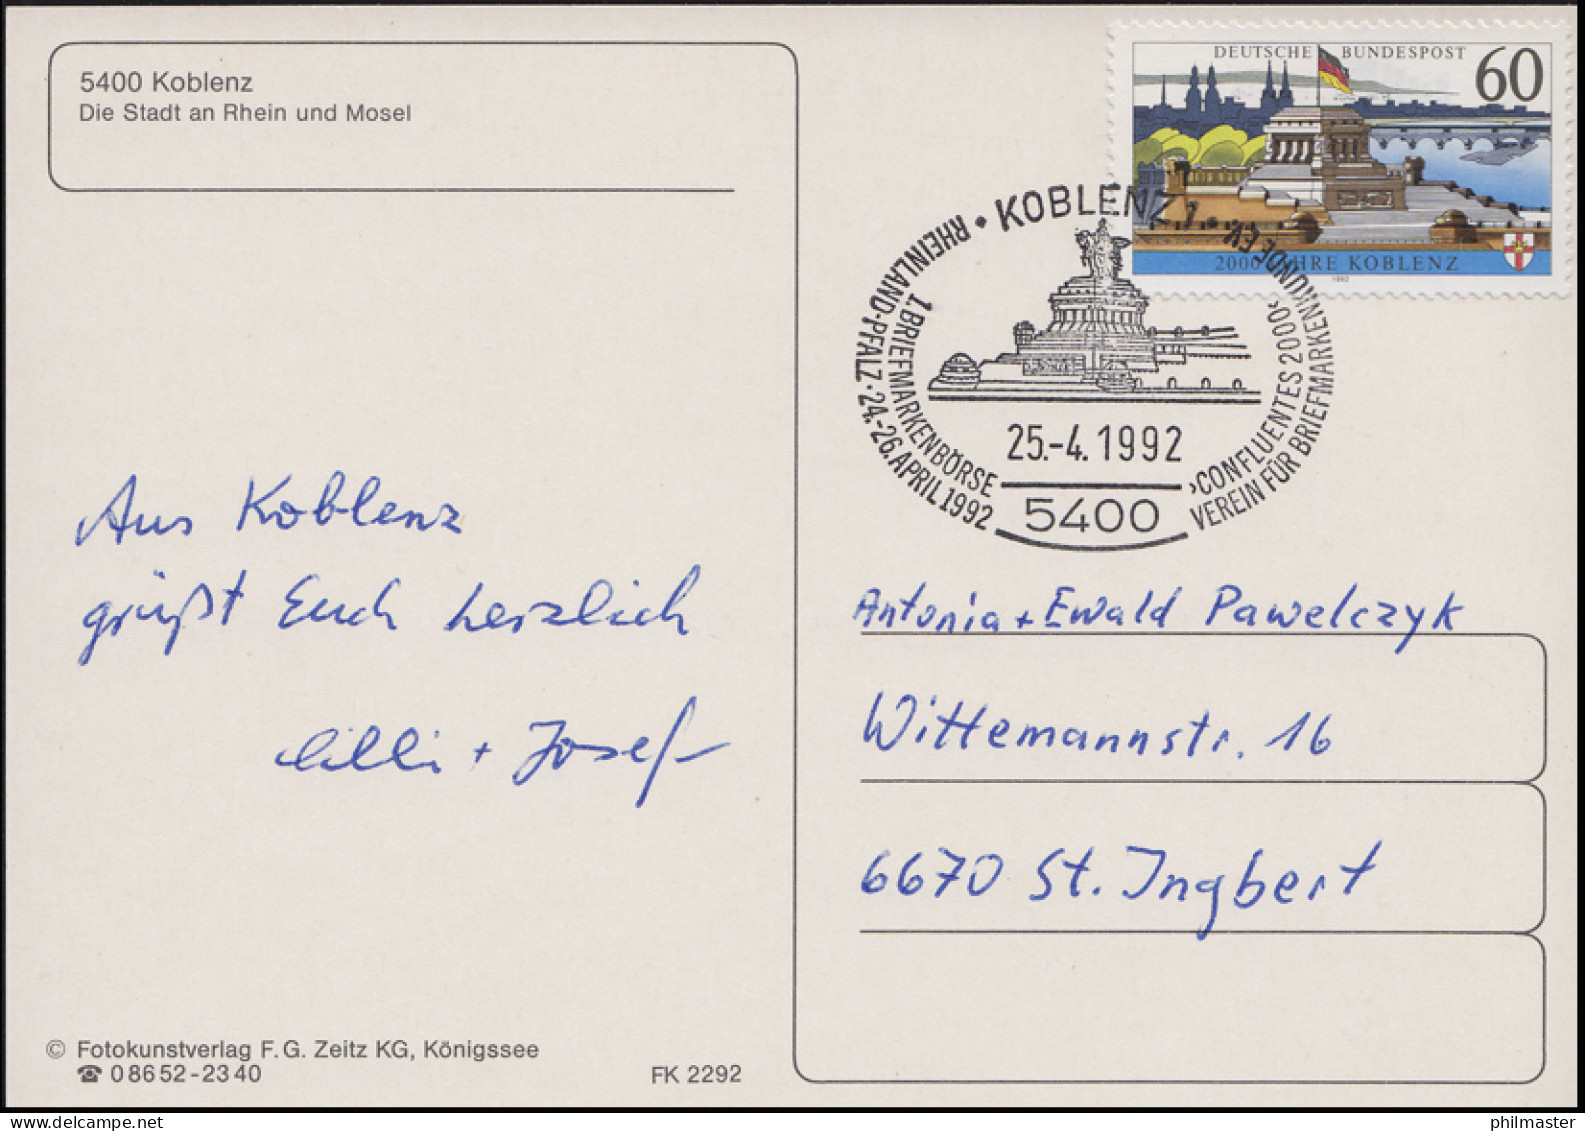 5400 Koblenz
Die Stadt an Rhein und Mosel
DEUTSCHE BUNDESPOST 60
2000 JAHRE KOBLENZ
1992
• KOBLENZ 1 •
1. BRIEFMARKENBÖRSE
RHEINLAND-PFALZ · 24.-26. APRIL 1992
›CONFLUENTES 2000‹
VEREIN FÜR BRIEFMARKENKUNDE E.V.
25.-4.1992
5400
Aus Koblenz
grüßt Euch herzlich
Cilli + Josef
Antonia + Ewald Pawelczyk
Wittemannstr. 16
6670 St. Ingbert
© Fotokunstverlag F. G. Zeitz KG, Königssee
☎ 0 86 52 - 23 40
FK 2292
philmaster